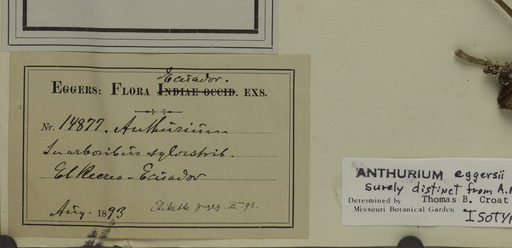 Ecuador.
EGGERS: FLORA INDIAE OCCID. EXS.
Nr. 14877. Anthurium
In arboribus sylvestrib.
El Recreo - Ecuador
Aug. 1893 Etikette II-98.
ANTHURIUM eggersii
surely distinct from A.
Determined by Thomas B. Croat
Missouri Botanical Garden ISOTYP